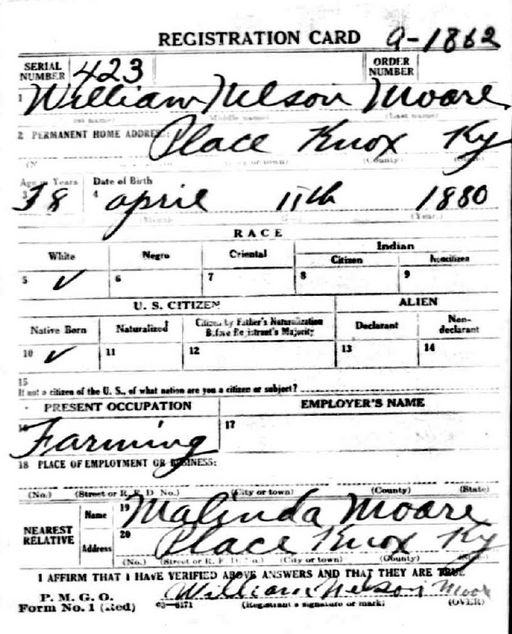 REGISTRATION CARD a-1862
SERIAL NUMBER 423 ORDER NUMBER
1 William Nelson Moore
(Middle name) (Last name)
2 PERMANENT HOME ADDRESS: Place Knox Ky
(County)
Age in Years Date of Birth
3 38 4 april 11th 1880
(Year.)
RACE
White Negro Oriental Indian
Citizen Noncitizen
5 ✓ 6 7 8 9
U. S. CITIZEN ALIEN
Native Born Naturalized Citizen by Father's Naturalization Before Registrant's Majority Declarant Non-declarant
10 ✓ 11 12 13 14
15
If not a citizen of the U. S., of what nation are you a citizen or subject?
PRESENT OCCUPATION EMPLOYER'S NAME
16 Farming 17
18 PLACE OF EMPLOYMENT OR BUSINESS:
(No.) (Street or R. F. D. No.) (City or town) (County) (State)
NEAREST RELATIVE Name 19 Malinda Moore
Address 20 Place Knox Ky
(No.) (Street or R. F. D. No.) (City or town) (County) (State)
I AFFIRM THAT I HAVE VERIFIED ABOVE ANSWERS AND THAT THEY ARE TRUE
P. M. G. O. William Nelson Moor
Form No. 1 (Red) 03-6171 (Registrant's signature or mark) (OVER)